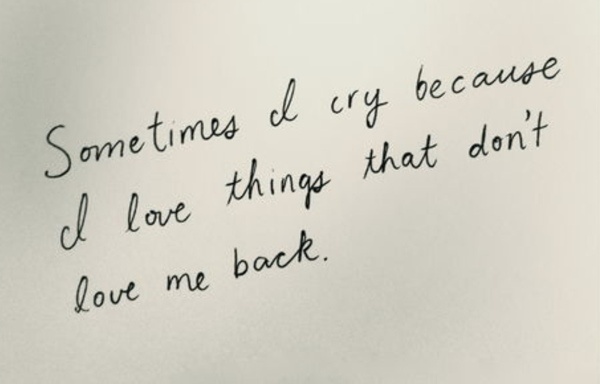 Sometimes I cry because
I love things that don't
love me back.